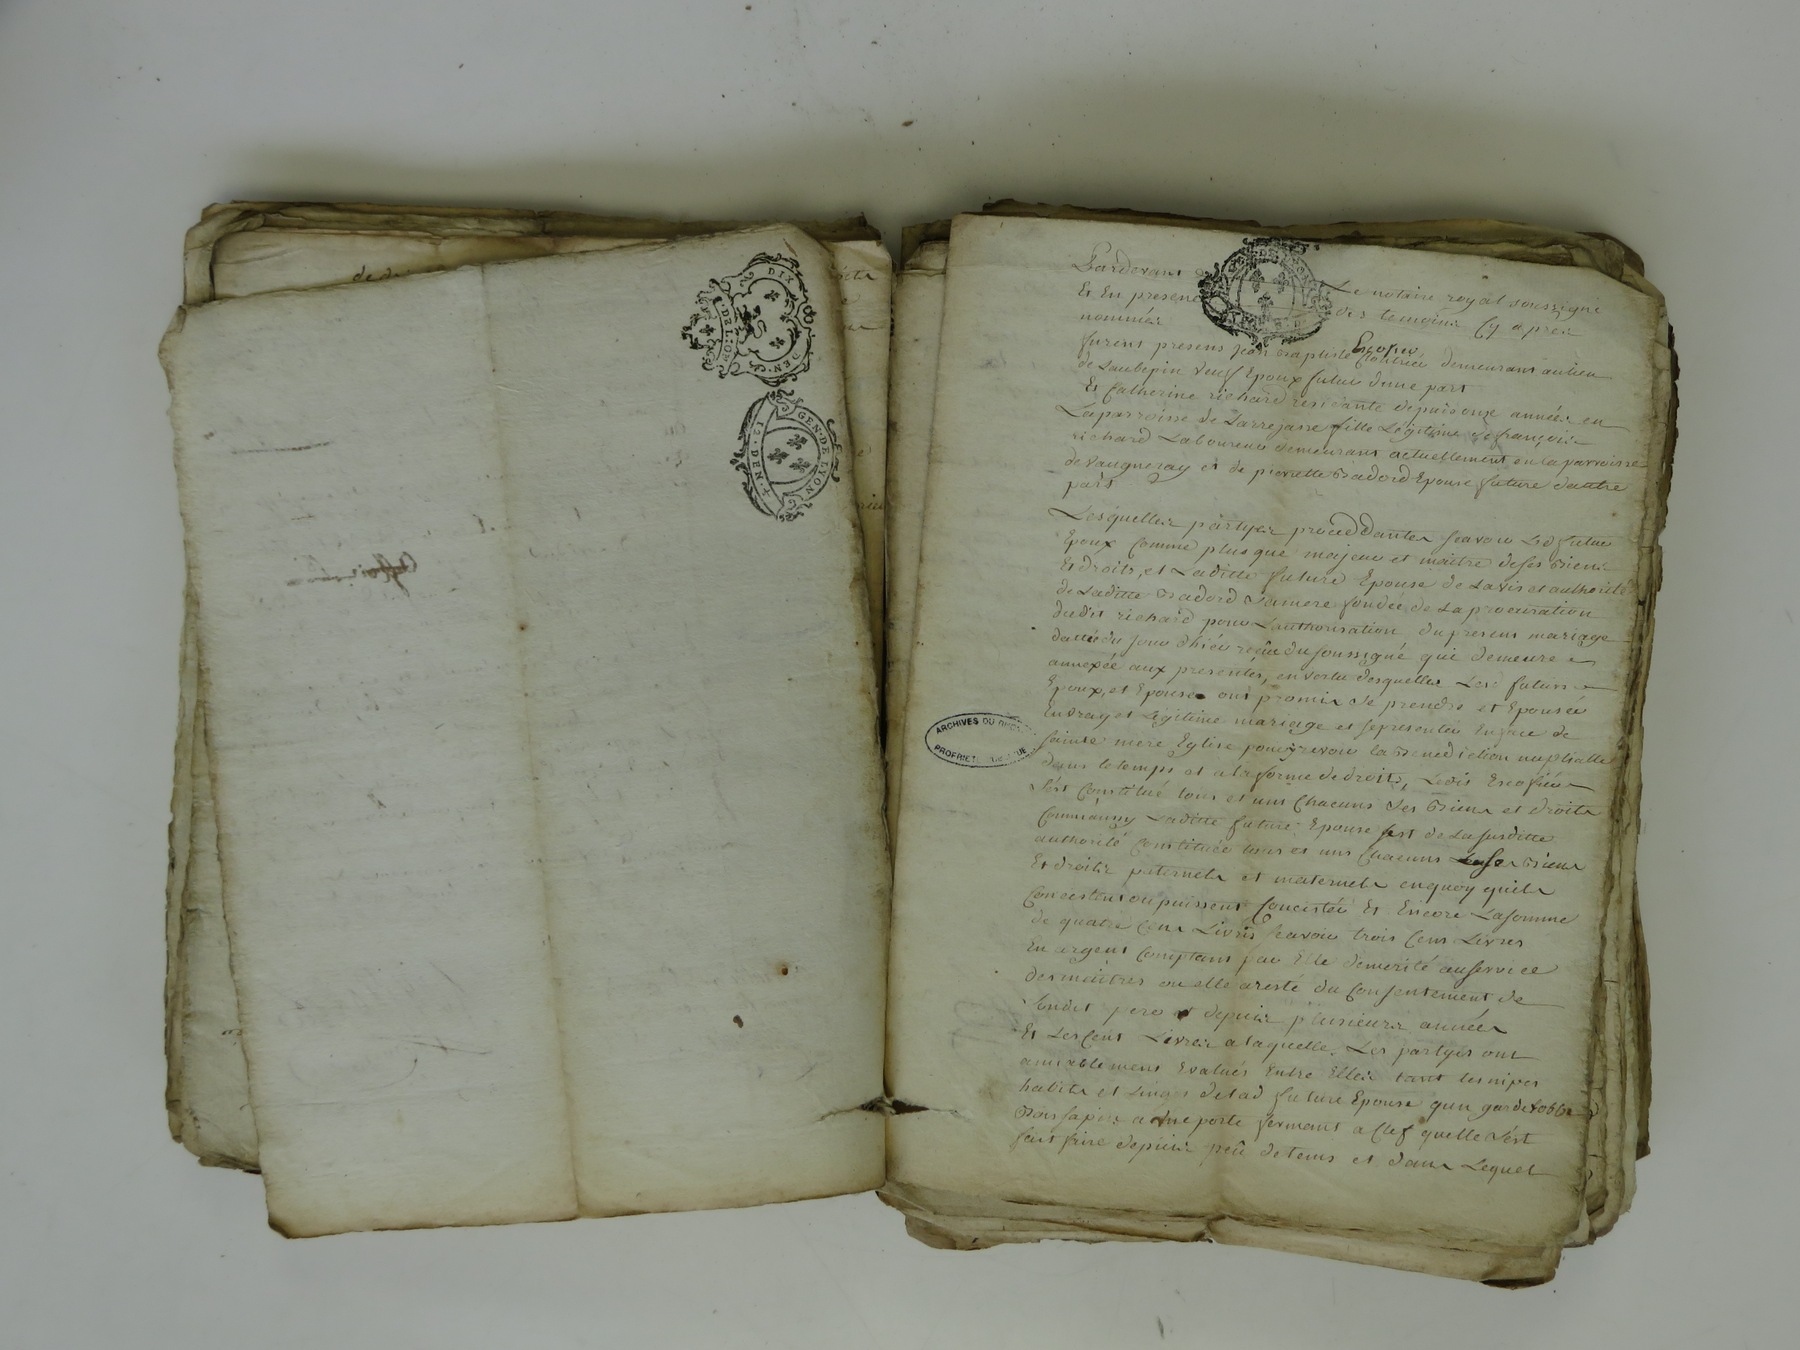 DIX DEN.
DE LION
GEN. DE LYON
12. DEN. R.
Pardevant Le notaire royal soussigné
Et En presence des temoins Cy apres
nommés
furent presens jean Baptiste Escofier demeurant au lieu
de Laubepin veuf Epoux futur dune part
Et Catherine richard residante depuis onze années en
La parroisse de Larrejasse fille Légitime de françois
richard Laboureur demeurant actuellement en la parroisse
de vaugneray et de pierrette Badord Epouse future dautre
part
Lesquelles partyes proceddantes scavoir Led futur
Epoux Comme plus que majeur et maitre de ses Biens
Et droits, et Laditte future Epouse de Lavis et authorité
de Laditte Badord sa mere fondée de La procuration
dudit richard pour Lauthorisation du present mariage
dattée du jour dhier reçue du soussigné qui demeure
annexée aux presentes, en vertu desquelles Les futurs
Epoux, et Epouse ont promis de prendre et Epouser
En vray et Légitime mariage et se presenter En face de
sainte mere Eglise pour y recevoir la Benediction nuptialle
dans le temps et a la forme de droits, Ledit Escofier
s'est Constitué tous et uns Chacuns ses Biens et droits
Laditte future Epouse s'est de La susditte
authorité Constituée tous et uns Chacuns ses Biens
Et droits paternels et maternels en quoy quils
Concistent ou puissent Concister Et Encore La somme
de quatre Cens Livres scavoir trois Cens Livres
En argent Comptant par Elle demerité au service
des maitres ou elle a resté du Consentement de
sondit pere et depuis plusieurs années
Et Les Cent Livres a laquelle Les partyes ont
amiablement Evalués Entre Elles tant les nipes
habits et Linges de lad future Epouse qun garderobbe
Bois sapin a une porte fermant a Clef quelle s'est
fait faire depuis peu de tems et dans Lequel
ARCHIVES DU
PROPRIETE